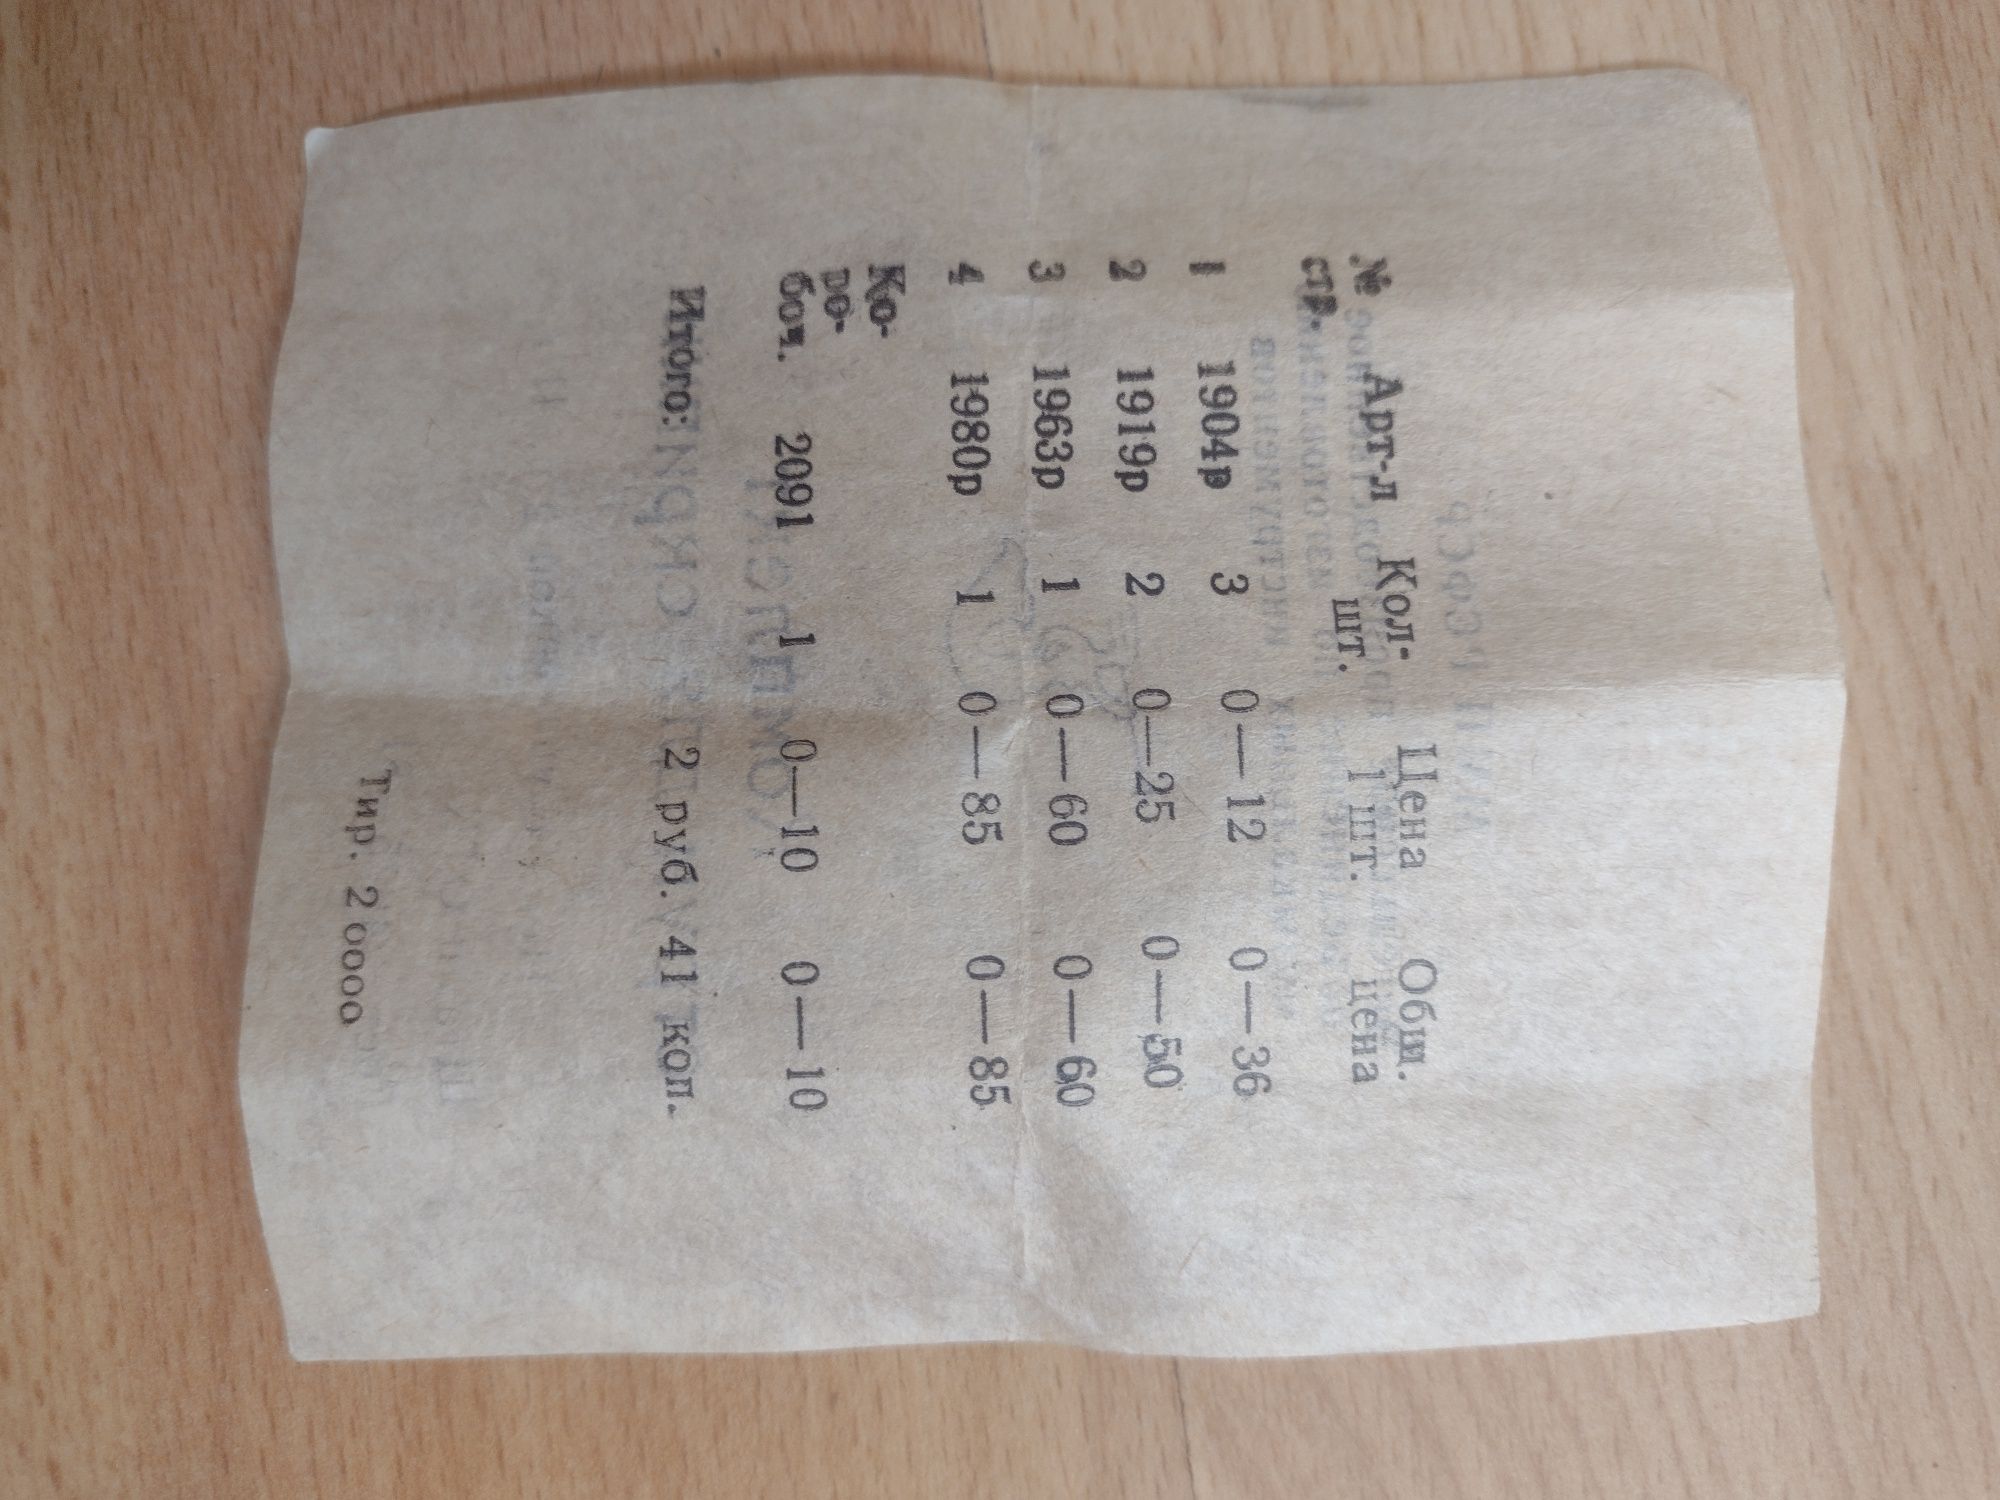 № Арт-л Кол- Цена Общ.
стр. шт. 1 шт. цена
1 1904р 3 0—12 0—36
2 1919р 2 0—25 0—50
3 1963р 1 0—60 0—60
4 1980р 1 0—85 0—85
Ко-
ро-
боч. 2091 1 0—10 0—10
Итого: 2 руб. 41 коп.
Тир. 20000